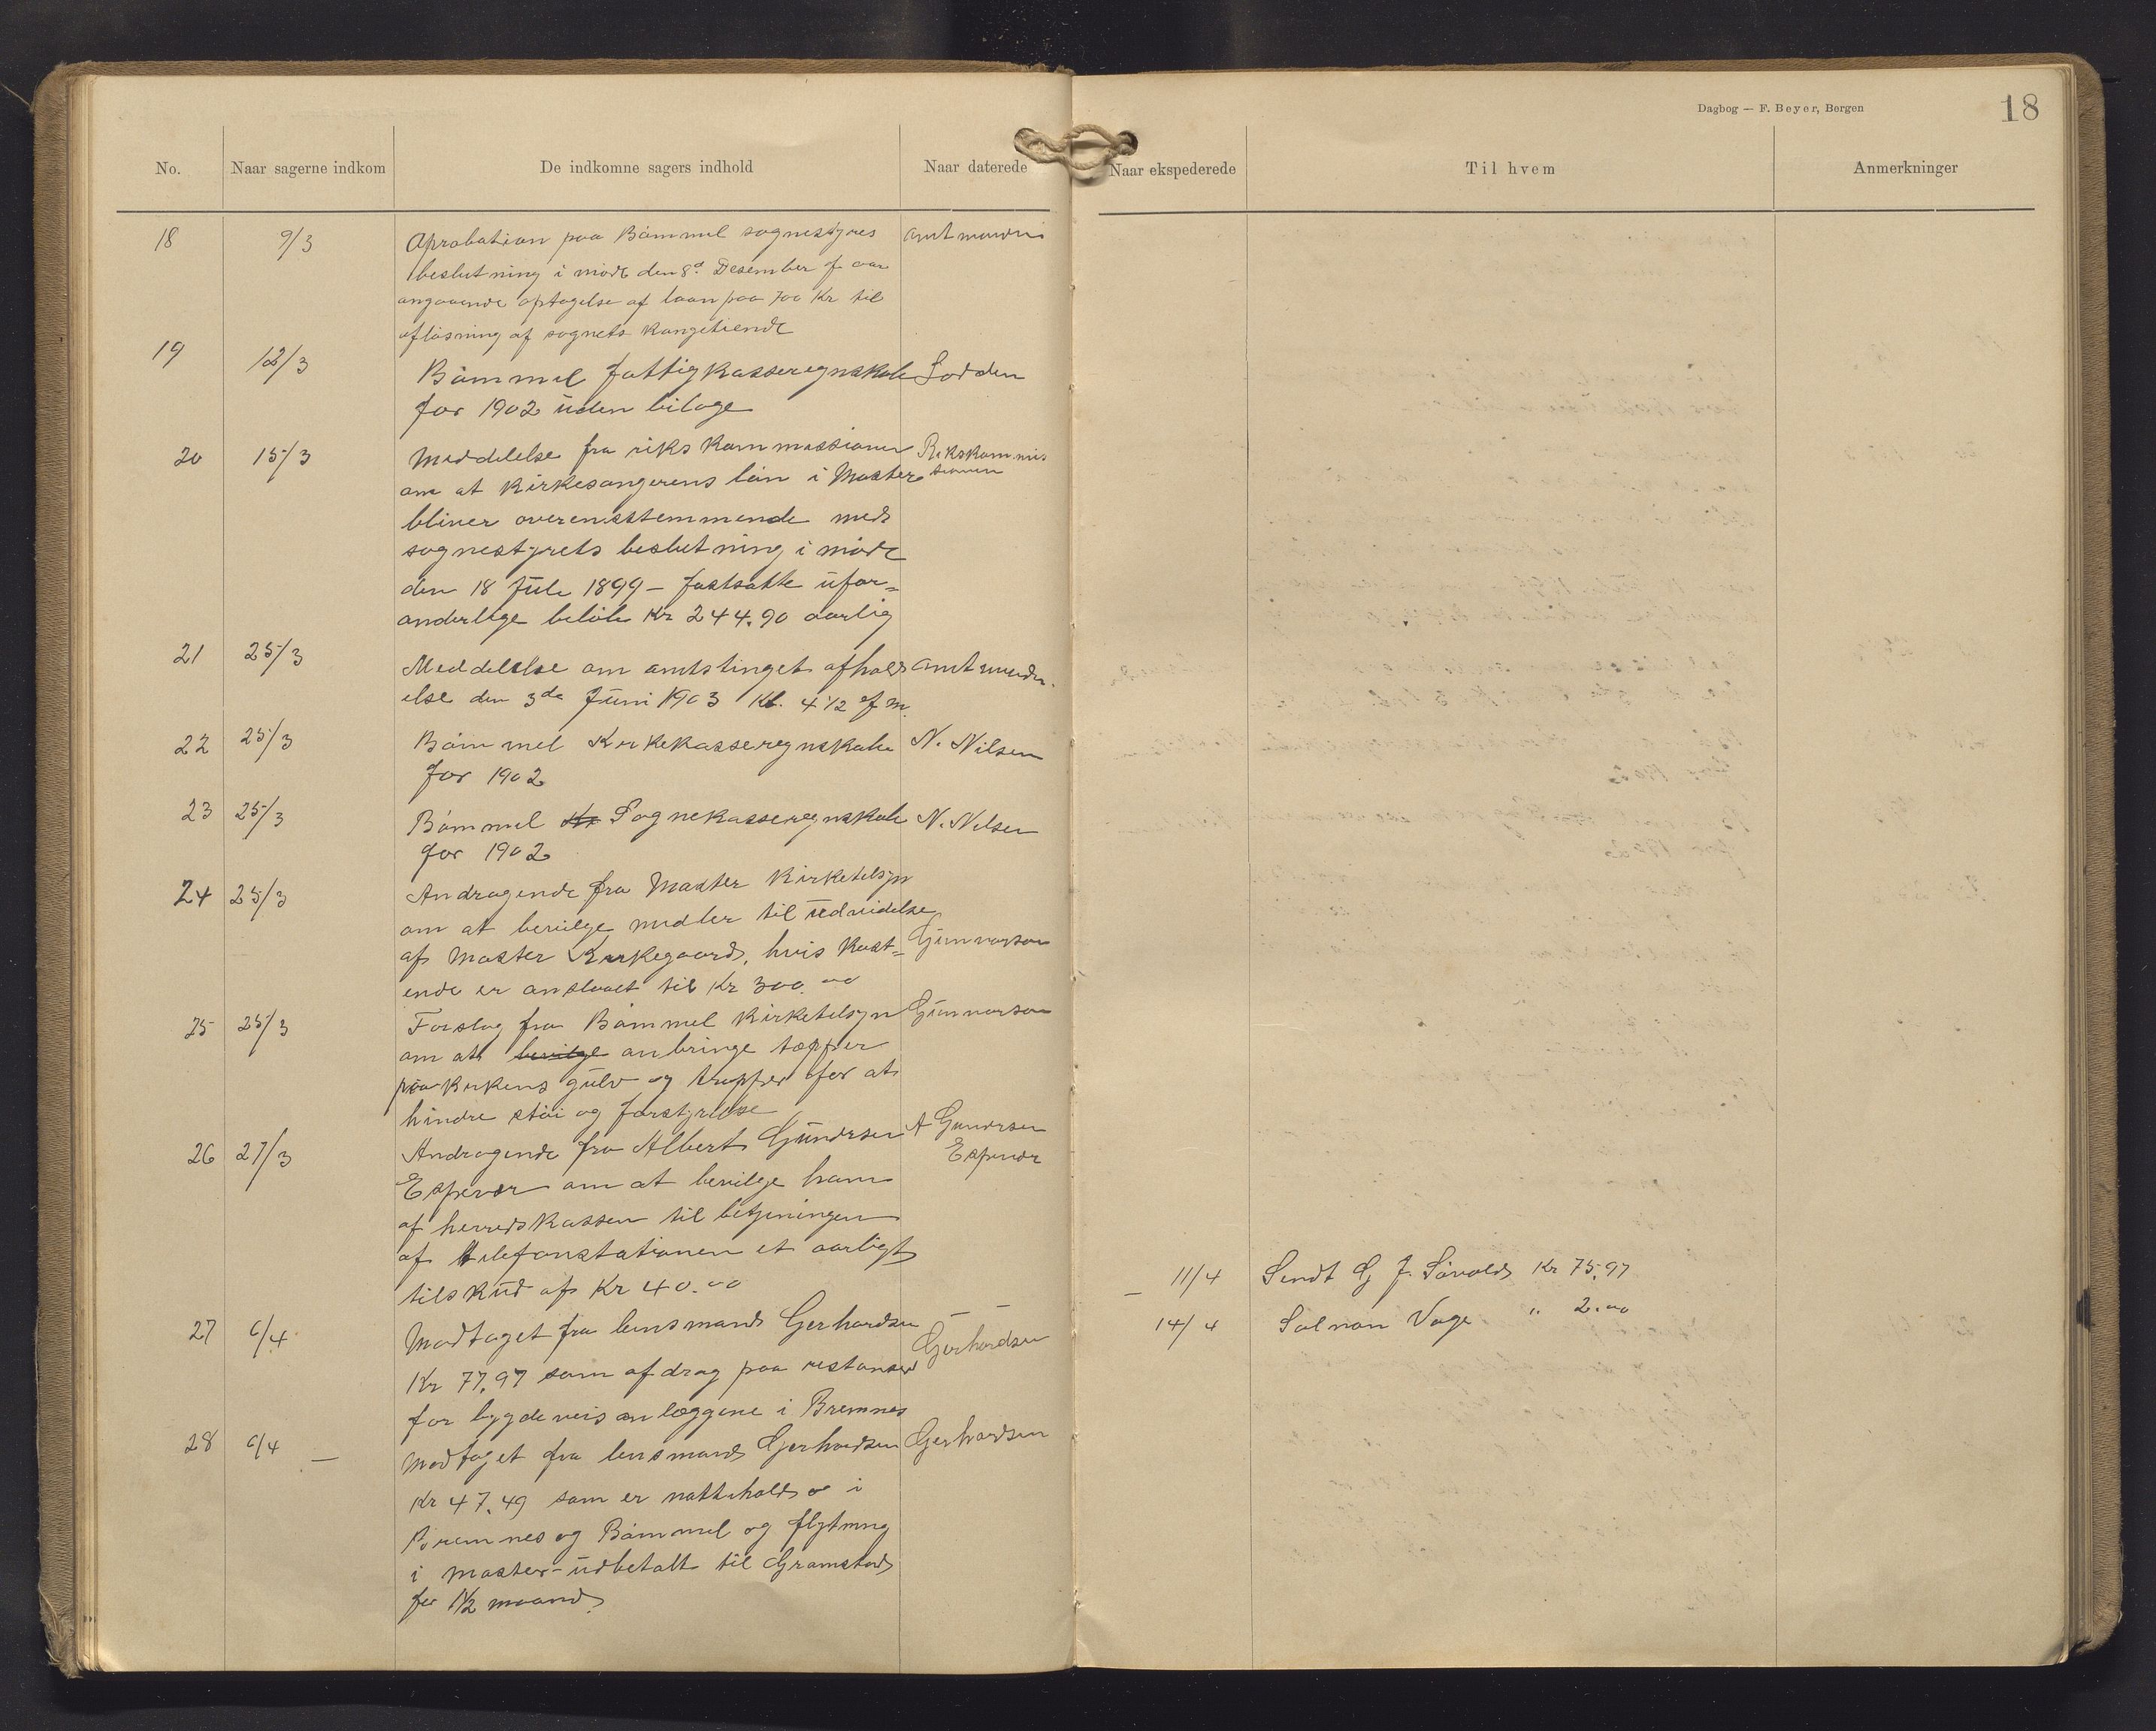 Dagbog — F. Beyer, Bergen
18
No. Naar sagerne indkom De indkomne sagers indhold Naar daterede Naar ekspederede Til hvem Anmerkninger
18 9/3 Aprobation paa Bömmel sognestyres Amtmanden
beslutning i möde den 8d Desember f aar
angaaende optagelse af laan paa 700 Kr til
aflösning af sognets Kongetiende
19 12/3 Bömmel fattigkasseregnskab Lodden
for 1902 uden bilage
20 15/3 Meddelelse fra rikskommissionen Rikskommis
om at Kirkesangerens lön i Moster sionen
bliver overensstemmende med
sognestyrets beslutning i möde
den 18 Juli 1899 – fastsatte ufor=
anderlige belöb Kr 244,90 aarlig
21 25/3 Meddelelse om amtstingets afhold= Amtmanden
else den 3de Juni 1903 Kl. 4 1/2 efm.
22 25/3 Bömmel Kirkekasseregnskab N. Nilsen
for 1902
23 25/3 Bömmel Ki Sognekasseregnskab N. Nilsen
for 1902
24 25/3 Andragende fra Moster Kirketilsyn
om at bevilge midler til udvidelse
af Moster Kirkegaard, hvis kost= Gunnarson
ende er anslaaet til Kr 300.00
25 25/3 Forslag fra Bömmel Kirketilsyn Gunnarson
om at bevilge anbringe tæpper
paa Kirkens gulv og trapper for at
hindre stöi og forstyrrelse
26 27/3 Andragende fra Albert Gundersen A Gundersen
Espevær om at bevilge ham Espevær
af herredskassen til betjeningen
af telefonstationen et aarligt
tilskud af Kr 40.00
27 6/4 Modtaget fra lensmand Gerhardsen Gerhardsen
Kr 77,97 som afdrag paa restanser
for bygdeveisanlæggene i Bremnes
28 6/4 — Modtaget fra lensmand Gerhardsen Gerhardsen
Kr 47,49 som er nattehold i
Bremnes og Bömmel og flytning
i Moster – udbetalt til Gramstad
for 1 1/2 maaned.
11/4 Sendt G J. Sövold Kr 75,97
14/4 Salmon Vage " 2.00